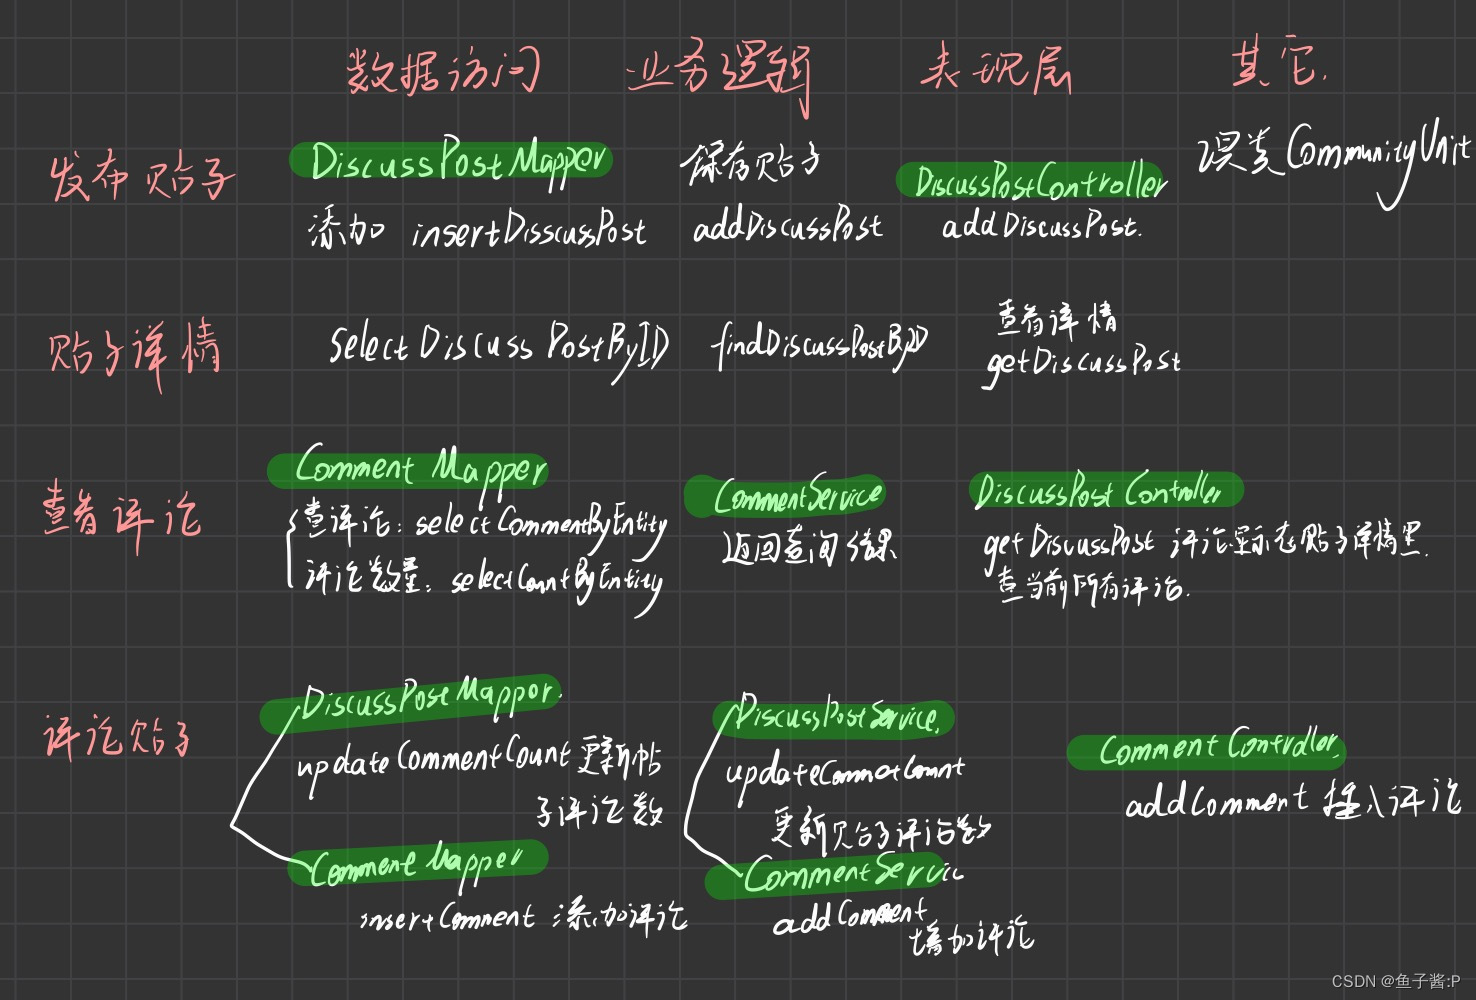 数据访问 业务逻辑 表现层 其它.
发布贴子 DiscussPostMapper 保存贴子 DiscussPostController CommunityUnit
添加 insertDisscussPost addDiscussPost addDiscussPost.
贴子详情 selectDiscussPostByID findDiscussPostByID 查看详情
getDiscussPost
查看评论 CommentMapper CommentService DiscussPostController
查评论: selectCommentByEntity 返回查询结果 getDiscussPost 评论显示在贴子详情里.
评论数量: selectCountByEntity 查当前所有评论.
评论贴子 DiscussPostMappor. DiscussPostService. CommentController.
updateCommentCount 更新帖 updateCommotCount addComment 插入评论
子评论数 更新贴子评论数
CommentMapper CommentServic
insertComment 添加评论 addComment
增加评论
CSDN @鱼子酱:P